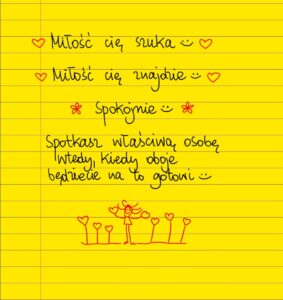 Miłość cię szuka :)
Miłość cię znajdzie :)
Spokojnie :)
Spotkasz właściwą osobę
wtedy, kiedy oboje
będziecie na to gotowi :)